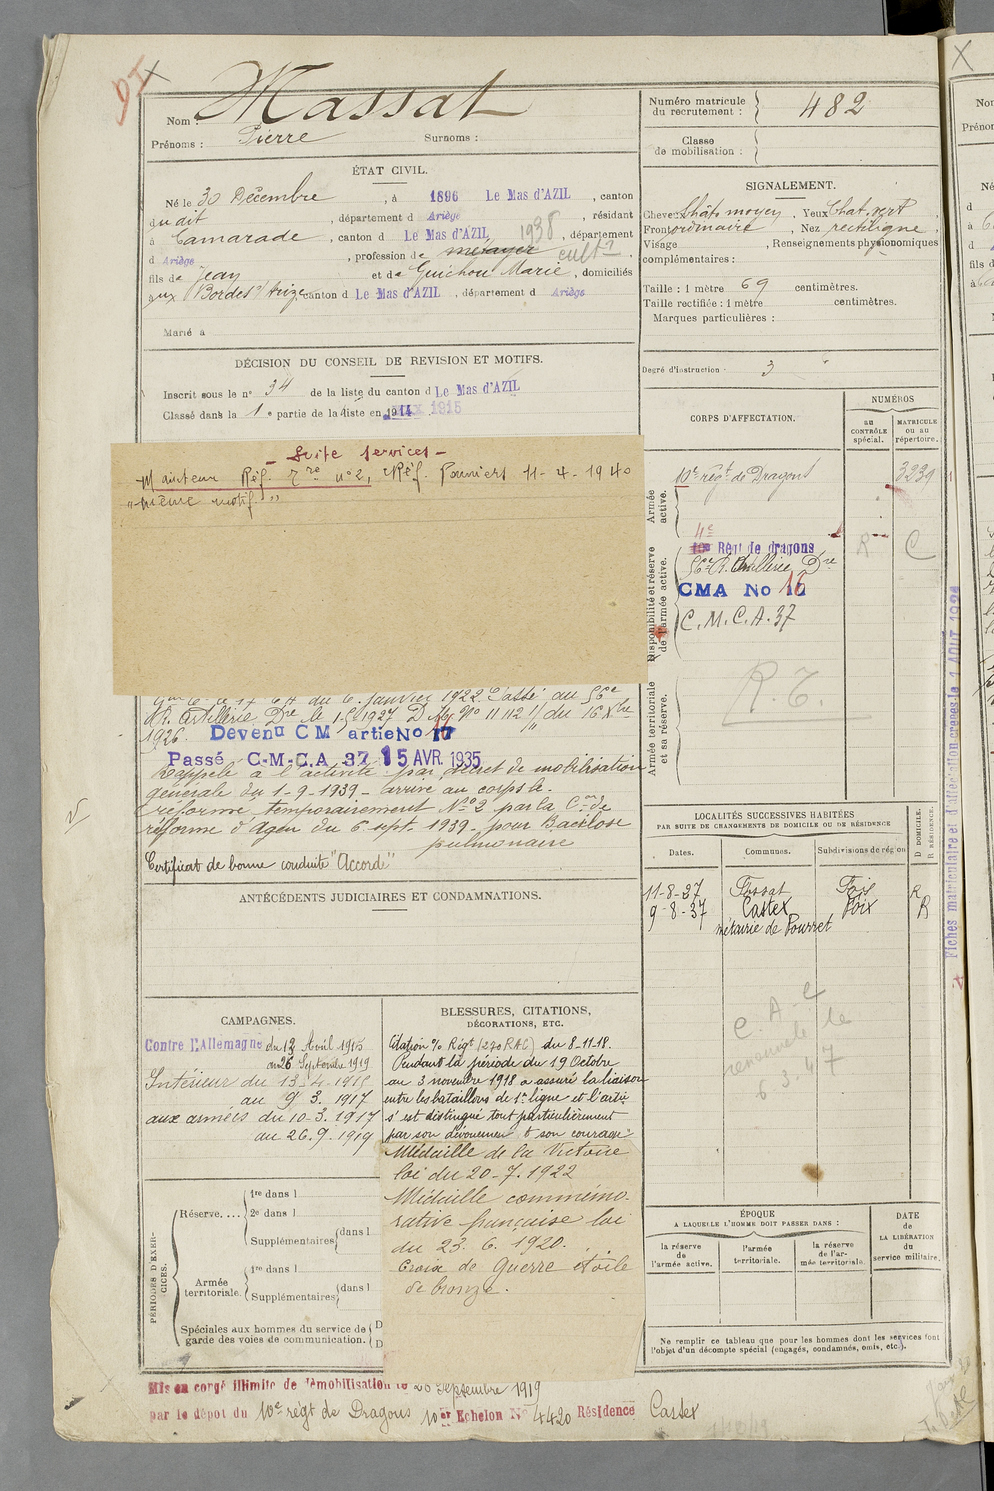 Nom : Massat
Prénoms : Pierre Surnoms :
Numéro matricule du recrutement : 482
Classe de mobilisation :
ÉTAT CIVIL.
Né le 30 Décembre , à 1896 Le Mas d'AZIL , canton
dudit , département d Ariège , résidant
à Camarade , canton d Le Mas d'AZIL 1938 , département
d Ariège , profession de métayer cult.r
fils de Jean et de Guichou Marie , domiciliés
aux Bordes s/ Arize canton d Le Mas d'AZIL , département d Ariège
Marié à
SIGNALEMENT.
Cheveux Chât. moyen , Yeux Chat. vert ,
Front ordinaire , Nez rectiligne ,
Visage , Renseignements physionomiques
complémentaires :
Taille : 1 mètre 69 centimètres.
Taille rectifiée : 1 mètre centimètres.
Marques particulières :
Degré d'instruction · 3
DÉCISION DU CONSEIL DE REVISION ET MOTIFS.
Inscrit sous le n° 34 de la liste du canton d Le Mas d'AZIL
Classé dans la 1e partie de la liste en 1914 1915
- Suite Services -
Mainteur Réf. Tre n°2, Réf. Pamiers 11-4-1940
"même motif."
6 Janvier 1922. Passé au 56e
R. Artillerie Dre le 1-5-1927 D. M. No 11112 1/ du 16 Xbre
1926. Devenu C M artie No 16
Passé C-M-C.A 37 15 AVR. 1935
Rappelé à l'activité par décret de mobilisation
générale du 1-9-1939 - arrive au corps le.
réformé temporairement No 2 par la Con de
réforme d'Agen du 6 sept. 1939 - pour Bacillose
pulmonaire
Certificat de bonne conduite "Accordé"
CORPS D'AFFECTATION.
NUMÉROS
au CONTRÔLE spécial.
MATRICULE ou au répertoire.
Armée active.
10e régt de Dragons 3239
Disponibilité et réserve de l'armée active.
4e
Régt de dragons R C
56e R. Artillerie Dre
CMA No 16
C.M.C.A. 37
Armée territoriale et sa réserve.
R.T.
LOCALITÉS SUCCESSIVES HABITÉES
PAR SUITE DE CHANGEMENTS DE DOMICILE OU DE RÉSIDENCE
Dates. Communes. Subdivisions de région
D DOMICILE. R RÉSIDENCE.
11-8-27 Fossat Foix R
9-8-37 Castex Foix R
métairie de Pourret
C.A.C
renouvelé le
6.3.47
ANTÉCÉDENTS JUDICIAIRES ET CONDAMNATIONS.
CAMPAGNES.
Contre l'Allemagne du 13 Avril 1915
au 26 Septembre 1919
Intérieur du 13-4-1915
au 9 3. 1917
aux armées du 10-3.1917
au 26.9.1919
BLESSURES, CITATIONS,
DÉCORATIONS, ETC.
Citation % Régt (270 RAC) du 8-11-18.
Pendant la période du 19 Octobre
au 3 novembre 1918 a assuré la liaison
entre les bataillons de 1re ligne et l'artie
s'est distingué tout particulièrement
par son dévouement & son courage
Médaille de la Victoire
loi du 20-7.1922
Médaille commémo-
rative française loi
du 23. 6. 1920.
Croix de Guerre étoile
de bronze.
PÉRIODES D'EXERCICES.
Réserve.... 1re dans l
2e dans l
Supplémentaires dans l
Armée territoriale. 1re dans l
Supplémentaires dans l
Spéciales aux hommes du service de
garde des voies de communication.
ÉPOQUE
A LAQUELLE L'HOMME DOIT PASSER DANS :
la réserve de l'armée active.
l'armée territoriale.
la réserve de l'armée territoriale.
DATE de LA LIBÉRATION du service militaire.
Ne remplir ce tableau que pour les hommes dont les services font
l'objet d'un décompte spécial (engagés, condamnés, omis, etc.).
Mis en congé illimité de démobilisation le 26 Septembre 1919
par le dépôt du 10e régt de Dragons 10er Echelon No 4420 Résidence Castex